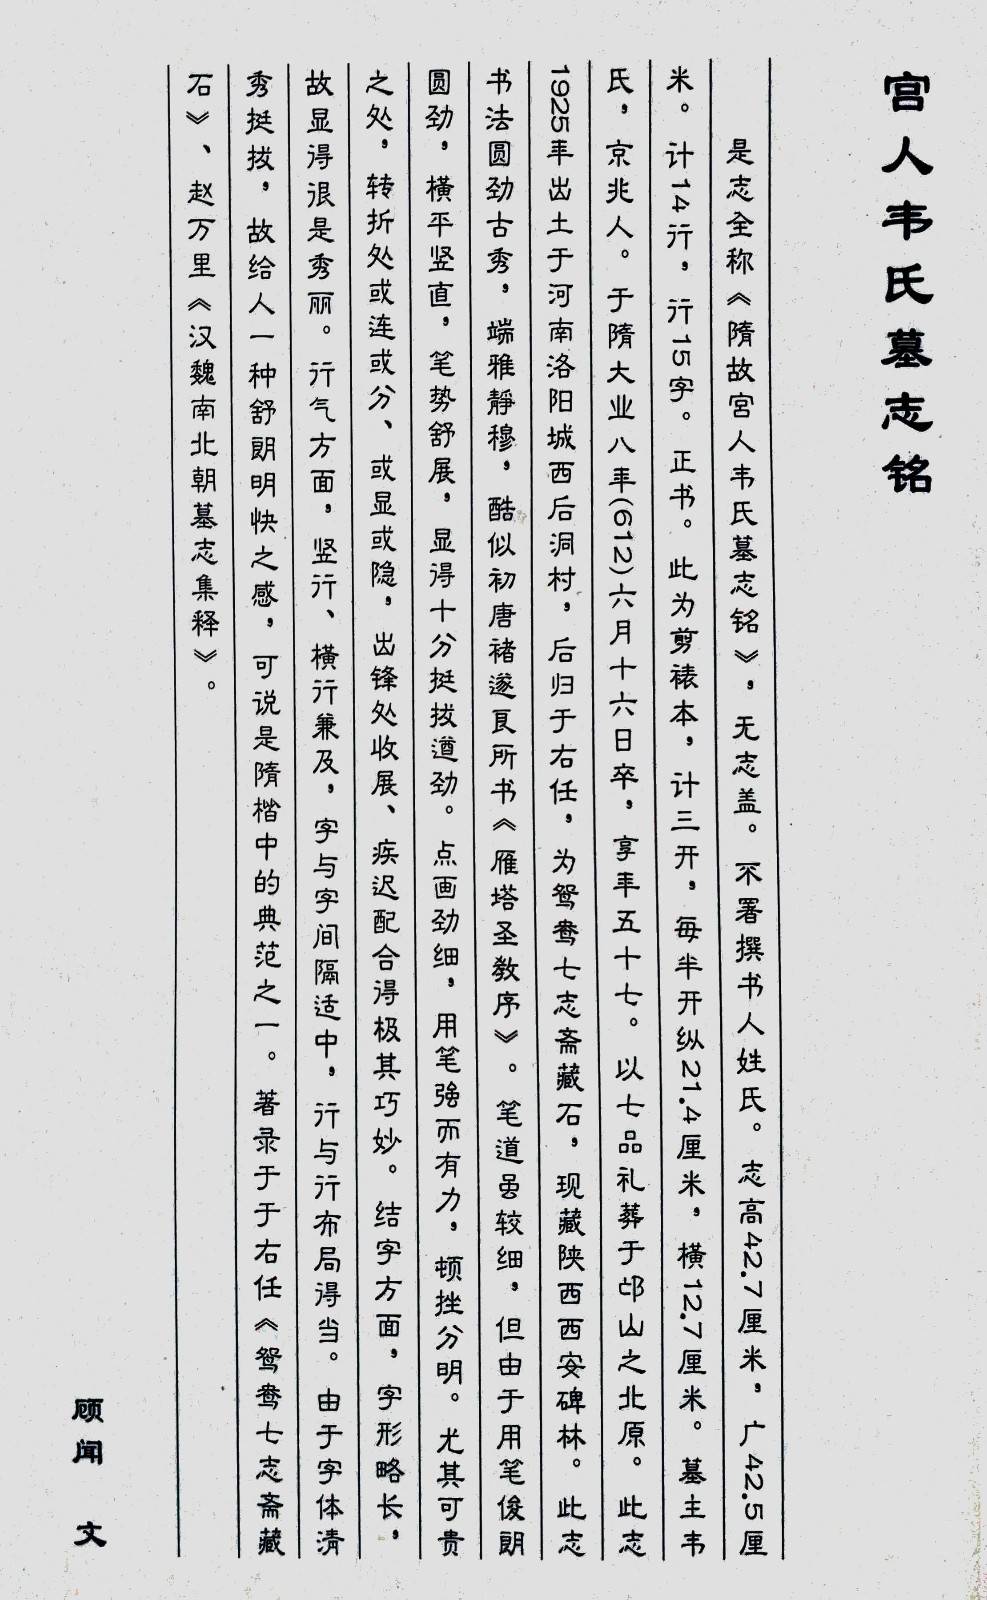 宫人韦氏墓志铭
是志全称《隋故宫人韦氏墓志铭》，无志盖。不署撰书人姓氏。志高42.7厘米，广42.5厘
米。计14行，行15字。正书。此为剪裱本，计三开，每半开纵21.4厘米，横12.7厘米。墓主韦
氏，京兆人。于隋大业八年(612)六月十六日卒，享年五十七。以七品礼葬于邙山之北原。此志
1925年出土于河南洛阳城西后洞村，后归于右任，为鸳鸯七志斋藏石，现藏陕西西安碑林。此志
书法圆劲古秀，端雅静穆，酷似初唐褚遂良所书《雁塔圣教序》。笔道虽较细，但由于用笔俊朗
圆劲，横平竖直，笔势舒展，显得十分挺拔遒劲。点画劲细，用笔强而有力，顿挫分明。尤其可贵
之处，转折处或连或分、或显或隐，出锋处收展、疾迟配合得极其巧妙。结字方面，字形略长，
故显得很是秀丽。行气方面，竖行、横行兼及，字与字间隔适中，行与行布局得当。由于字体清
秀挺拔，故给人一种舒朗明快之感，可说是隋楷中的典范之一。著录于于右任《鸳鸯七志斋藏
石》、赵万里《汉魏南北朝墓志集释》。
顾闻 文